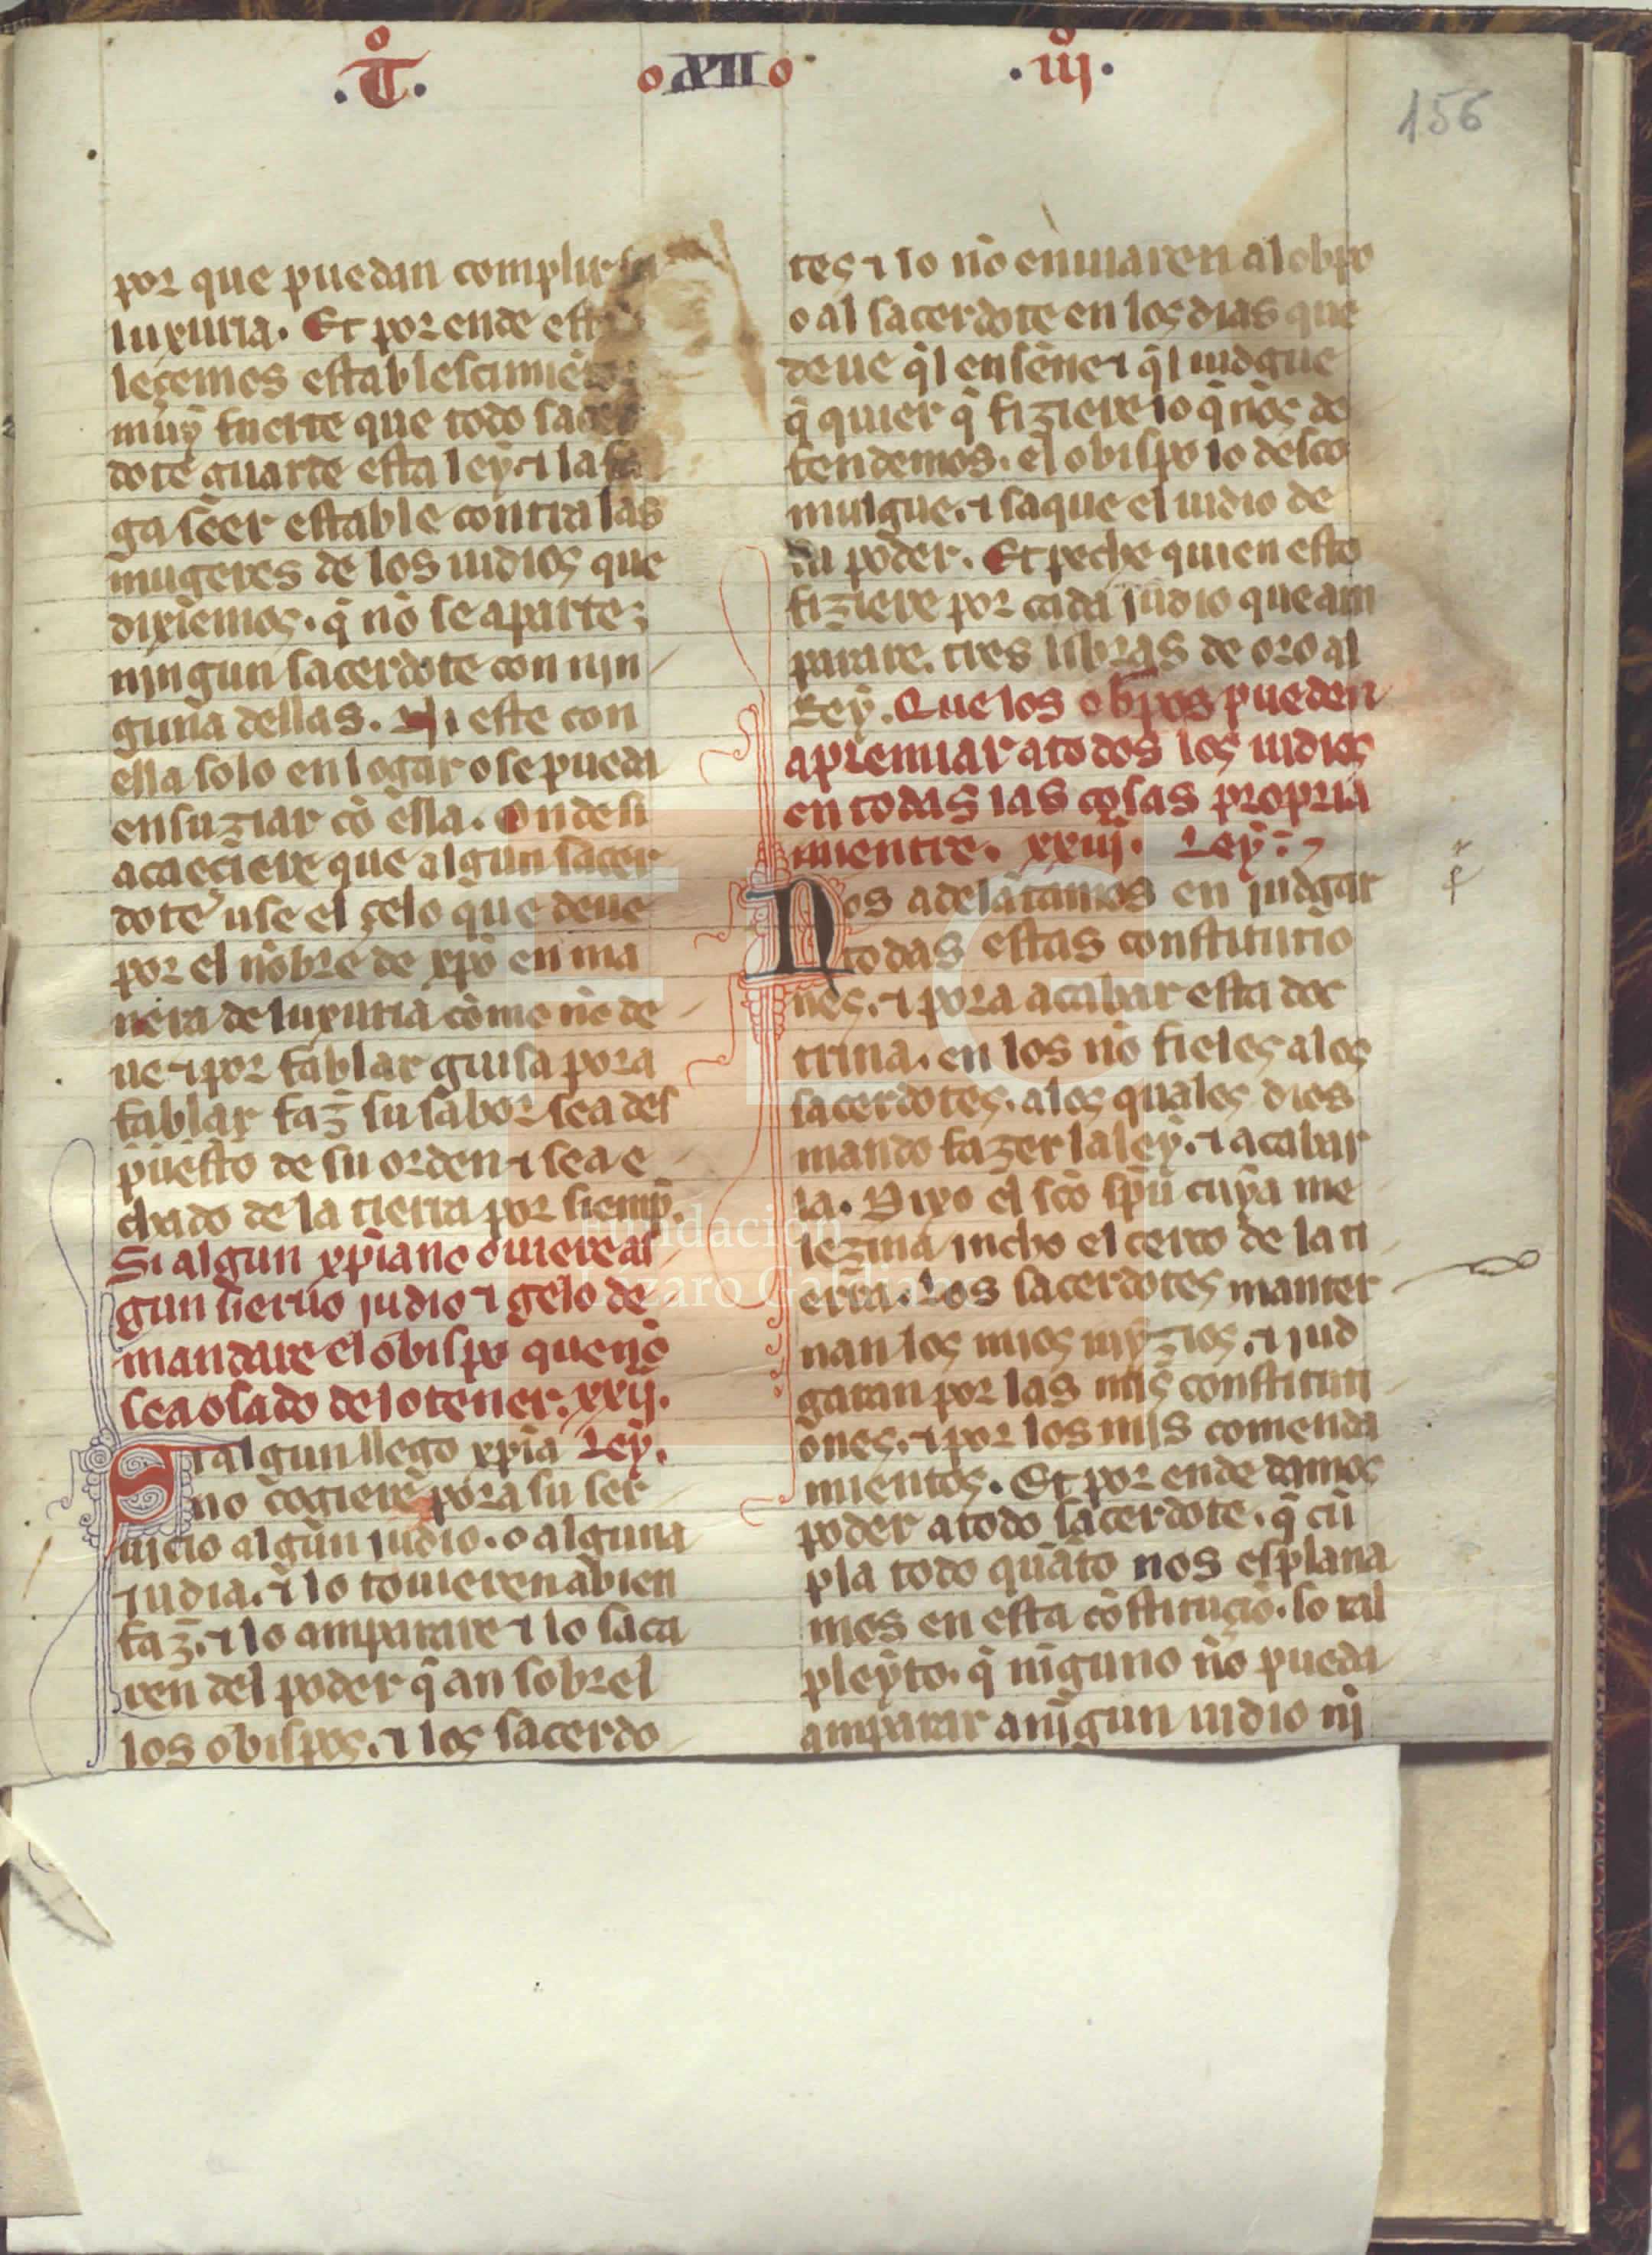 .T.
o XII o
.iij.
156
por que puedan complir su
luxuria. Et por ende est
leçemos establescimiẽto
muy fuerte que todo sacer
dote guarde esta ley. ⁊ la fa
ga seer estable contra las
mugeres de los iudios que
dixiemos. q̃ nõ se aparte
ningun sacerdote con nin
guna dellas. Ni este con
ella solo en logar o se pueda
ensuziar cõ ella. Onde si
acaeciere que algun sacer
dote use el zelo que deue
por el nõbre de xp̃o en ma
nera de luxuria cõmo nõ de
ue ⁊ por fablar guisa pora
fablar faz su sabor sea des
puesto de su orden ⁊ sea e
chado de la tierra por siemp̃.
Si algun xp̃iano ouiere al
gun sieruo iudio ⁊ gelo de
mandare el obispo que nõ
sea osado de lo tener. xxij.
Si algun llego xp̃ia Ley.
no cogiere pora su ser
uicio algun iudio. o alguna
iudia. ⁊ lo touieren a bien
faz. ⁊ lo amparare ⁊ lo saca
ren del poder q̃ an sobrel
los obispos. ⁊ los sacerdo
tes ⁊ lo nõ enuiaren al obpo
o al sacerdote en los dias que
deue q̃l ensene ⁊ q̃l iudgue
q̃ quier q̃ fiziere lo q̃ nos de
fendemos. el obispo lo desco
mulgue. ⁊ saque el iudio de
su poder. Et peche quien esto
fiziere por cada judio que am
parare. tres libras de oro al
Rey. Que los obp̃os pueden
apremiar a todos los iudios
en todas las cosas propria
mientre. xxiij. Ley.
Nos adelãtamos en judgar
todas estas constitutio
nes. ⁊ pora acabar esta doc
trina. en los nõ fieles a los
sacerdotes. a los quales dios
mando fazer la ley. ⁊ acabar
la. Dixo el sc̃o sp̃u cuya me
lezina incho el cerco de la ti
erra. Los sacerdotes manter
nan los mios iuyzios. ⁊ jud
garan por las mis constituti
ones. ⁊ por los mis comenda
mientos. Et por ende damos
poder a todo sacerdote. q̃ cũ
pla todo quãto nos esplana
mos en esta cõstituçiõ. so tal
pleyto. q̃ niguno nõ pueda
amparar a nigun iudio ni
Fundación
Lázaro Galdiano